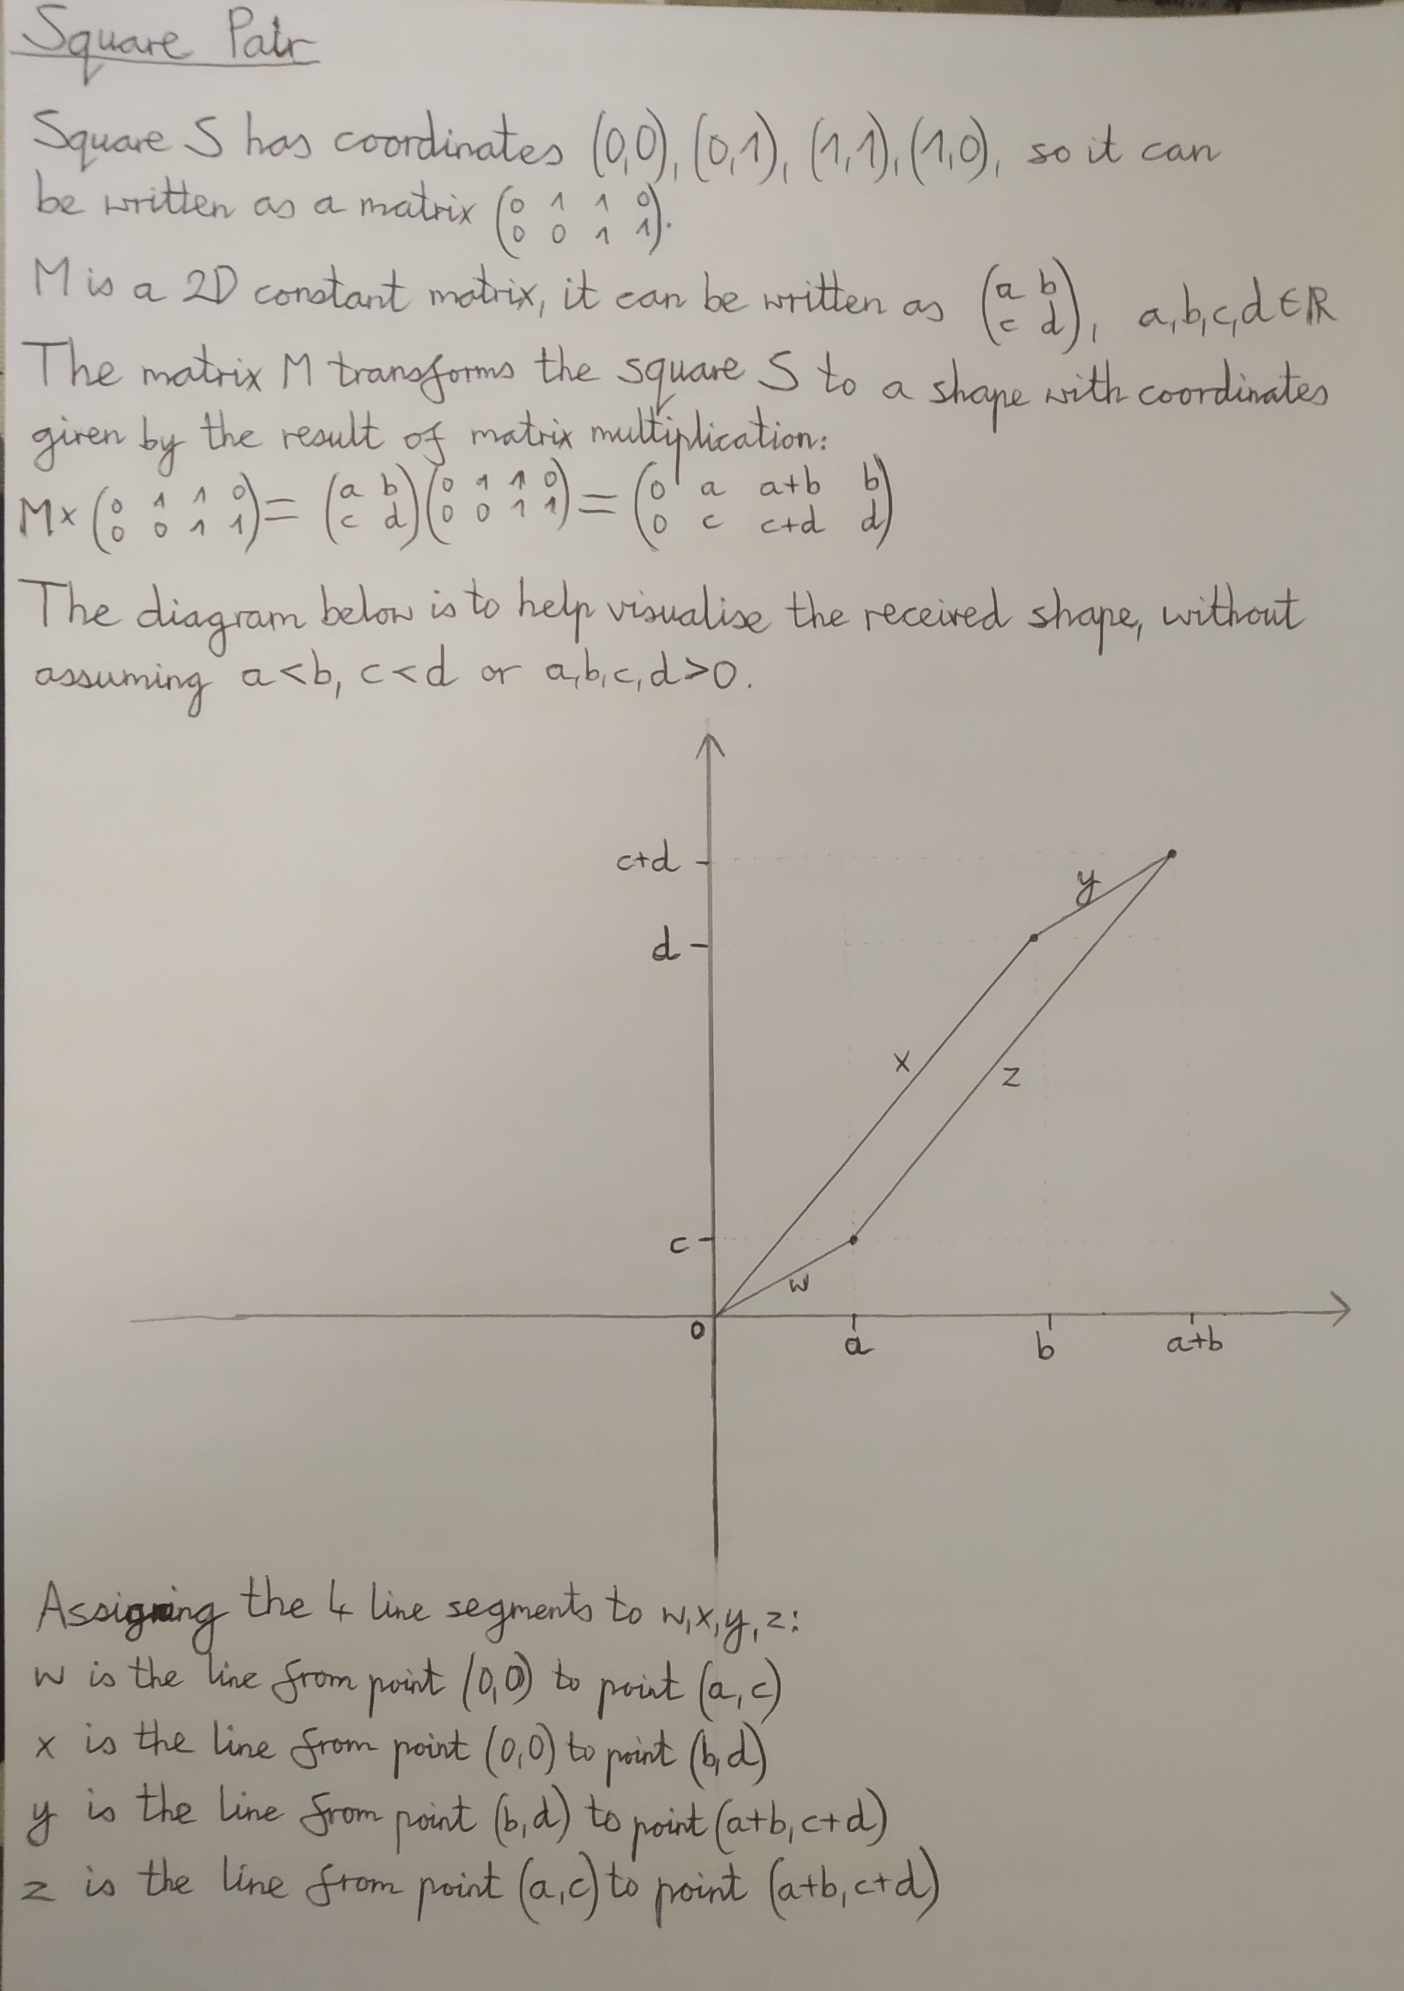 Square Pair
Square S has coordinates (0,0), (0,1), (1,1), (1,0), so it can
be written as a matrix (0 1 1 0 / 0 0 1 1).
M is a 2D constant matrix, it can be written as (a b / c d), a,b,c,d ∈ ℝ
The matrix M transforms the square S to a shape with coordinates
given by the result of matrix multiplication:
M × (0 1 1 0 / 0 0 1 1) = (a b / c d)(0 1 1 0 / 0 0 1 1) = (0 a a+b b / 0 c c+d d)
The diagram below is to help visualise the received shape, without
assuming a<b, c<d or a,b,c,d>0.
c+d
y
d
x
z
c
w
0
a
b
a+b
Assigning the 4 line segments to w,x,y,z:
w is the line from point (0,0) to point (a,c)
x is the line from point (0,0) to point (b,d)
y is the line from point (b,d) to point (a+b,c+d)
z is the line from point (a,c) to point (a+b,c+d)